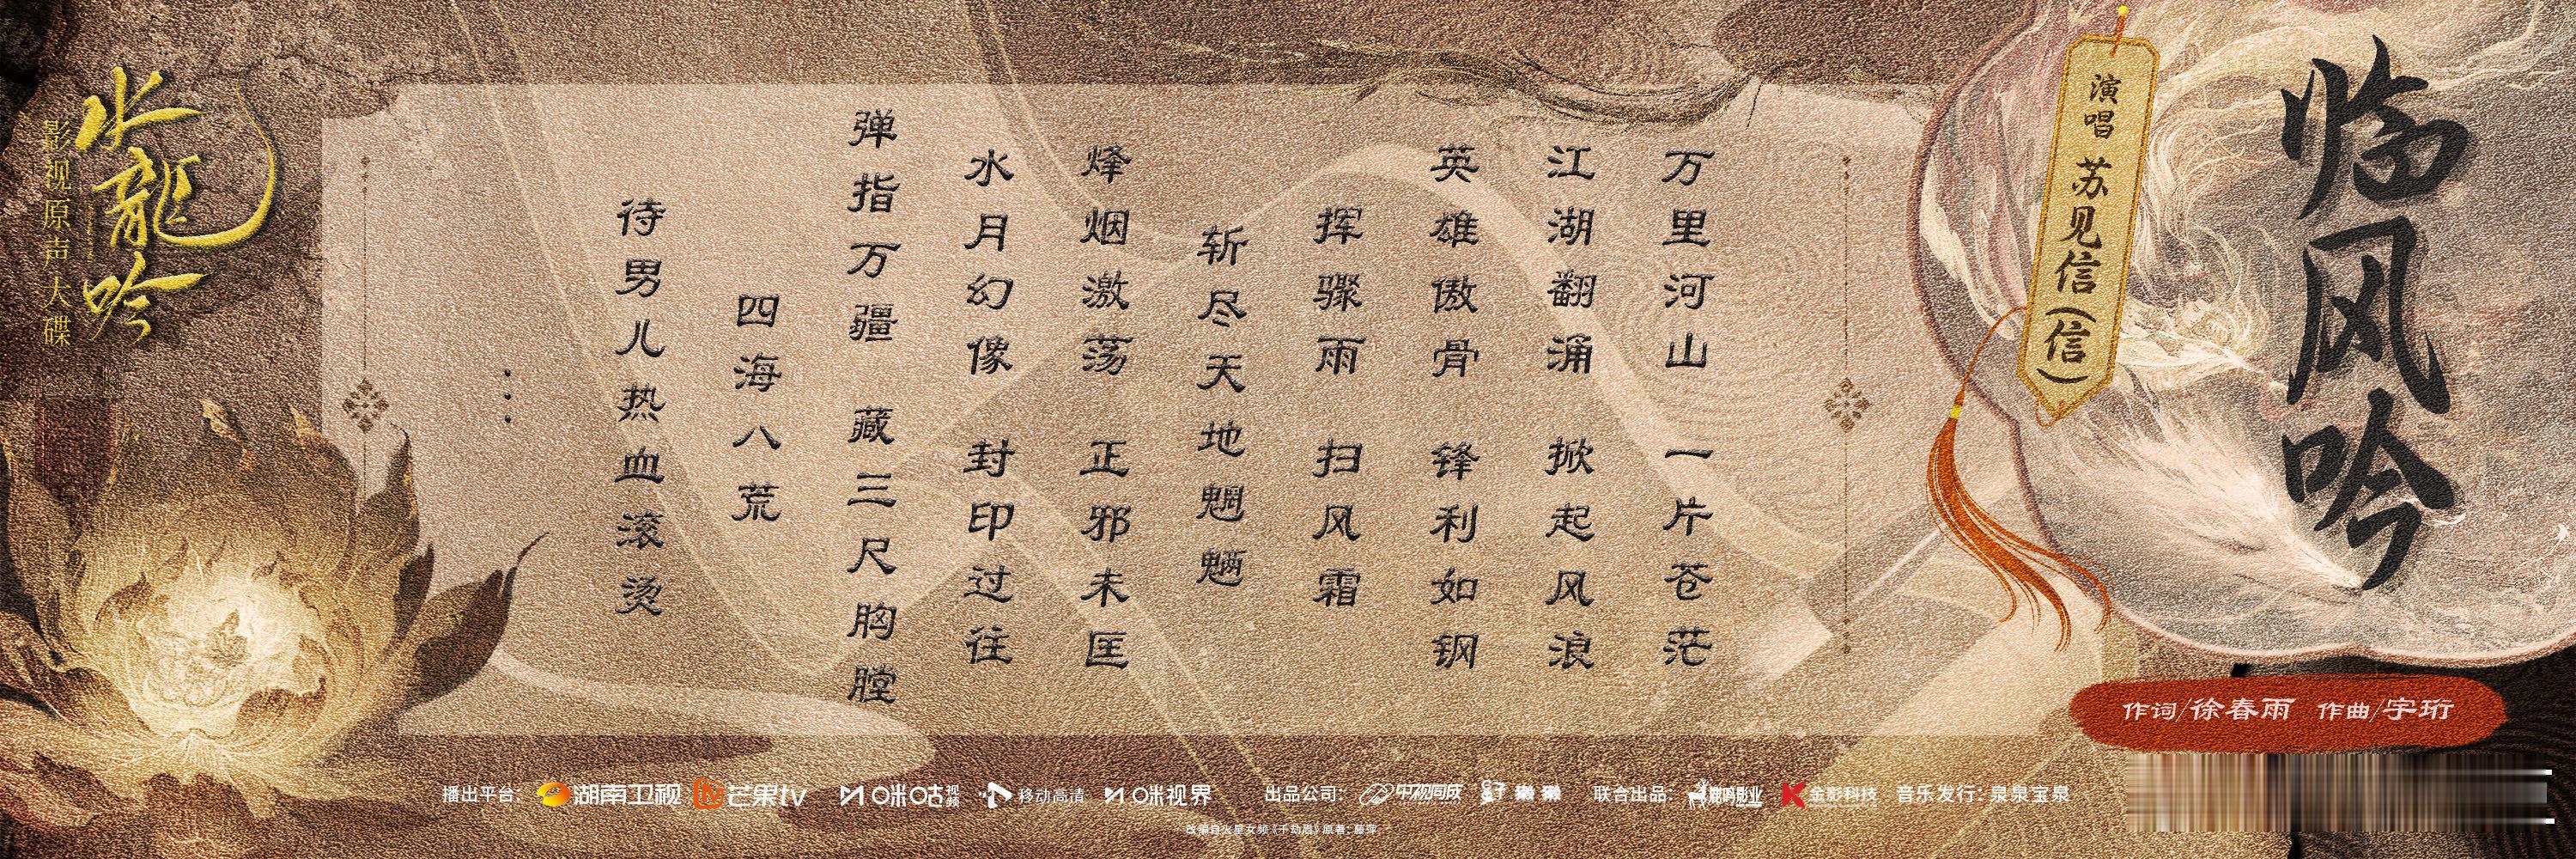 临风吟
演唱 苏见信(信)
作词/徐春雨 作曲/宇珩
万里河山 一片苍茫
江湖翻涌 掀起风浪
英雄傲骨 锋利如钢
挥骤雨 扫风霜
斩尽天地魍魉
烽烟激荡 正邪未匡
水月幻像 封印过往
弹指万疆 藏三尺胸膛
四海八荒
待男儿热血滚烫
...
水龍吟
影视原声大碟
播出平台: 湖南卫视 芒果tv 咪咕视频 移动高清 咪视界 出品公司: 中视同成 联合出品: 金影科技 音乐发行: 泉泉宝泉
改编自火星女频《千劫眉》原著: 藤萍